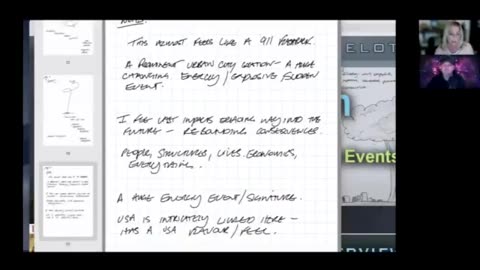 This almost feels like a 911 feedback.
A prominent urban city location - a huge
energy / explosive / sudden
event.
I feel vast impacts way into the
future - rebounding consequences.
People, structures, lives, economics,
everything.
A huge energy event / signature.
USA is intricately linked here -
has a USA flavour / feel.
ELOT
Events
ERVIE